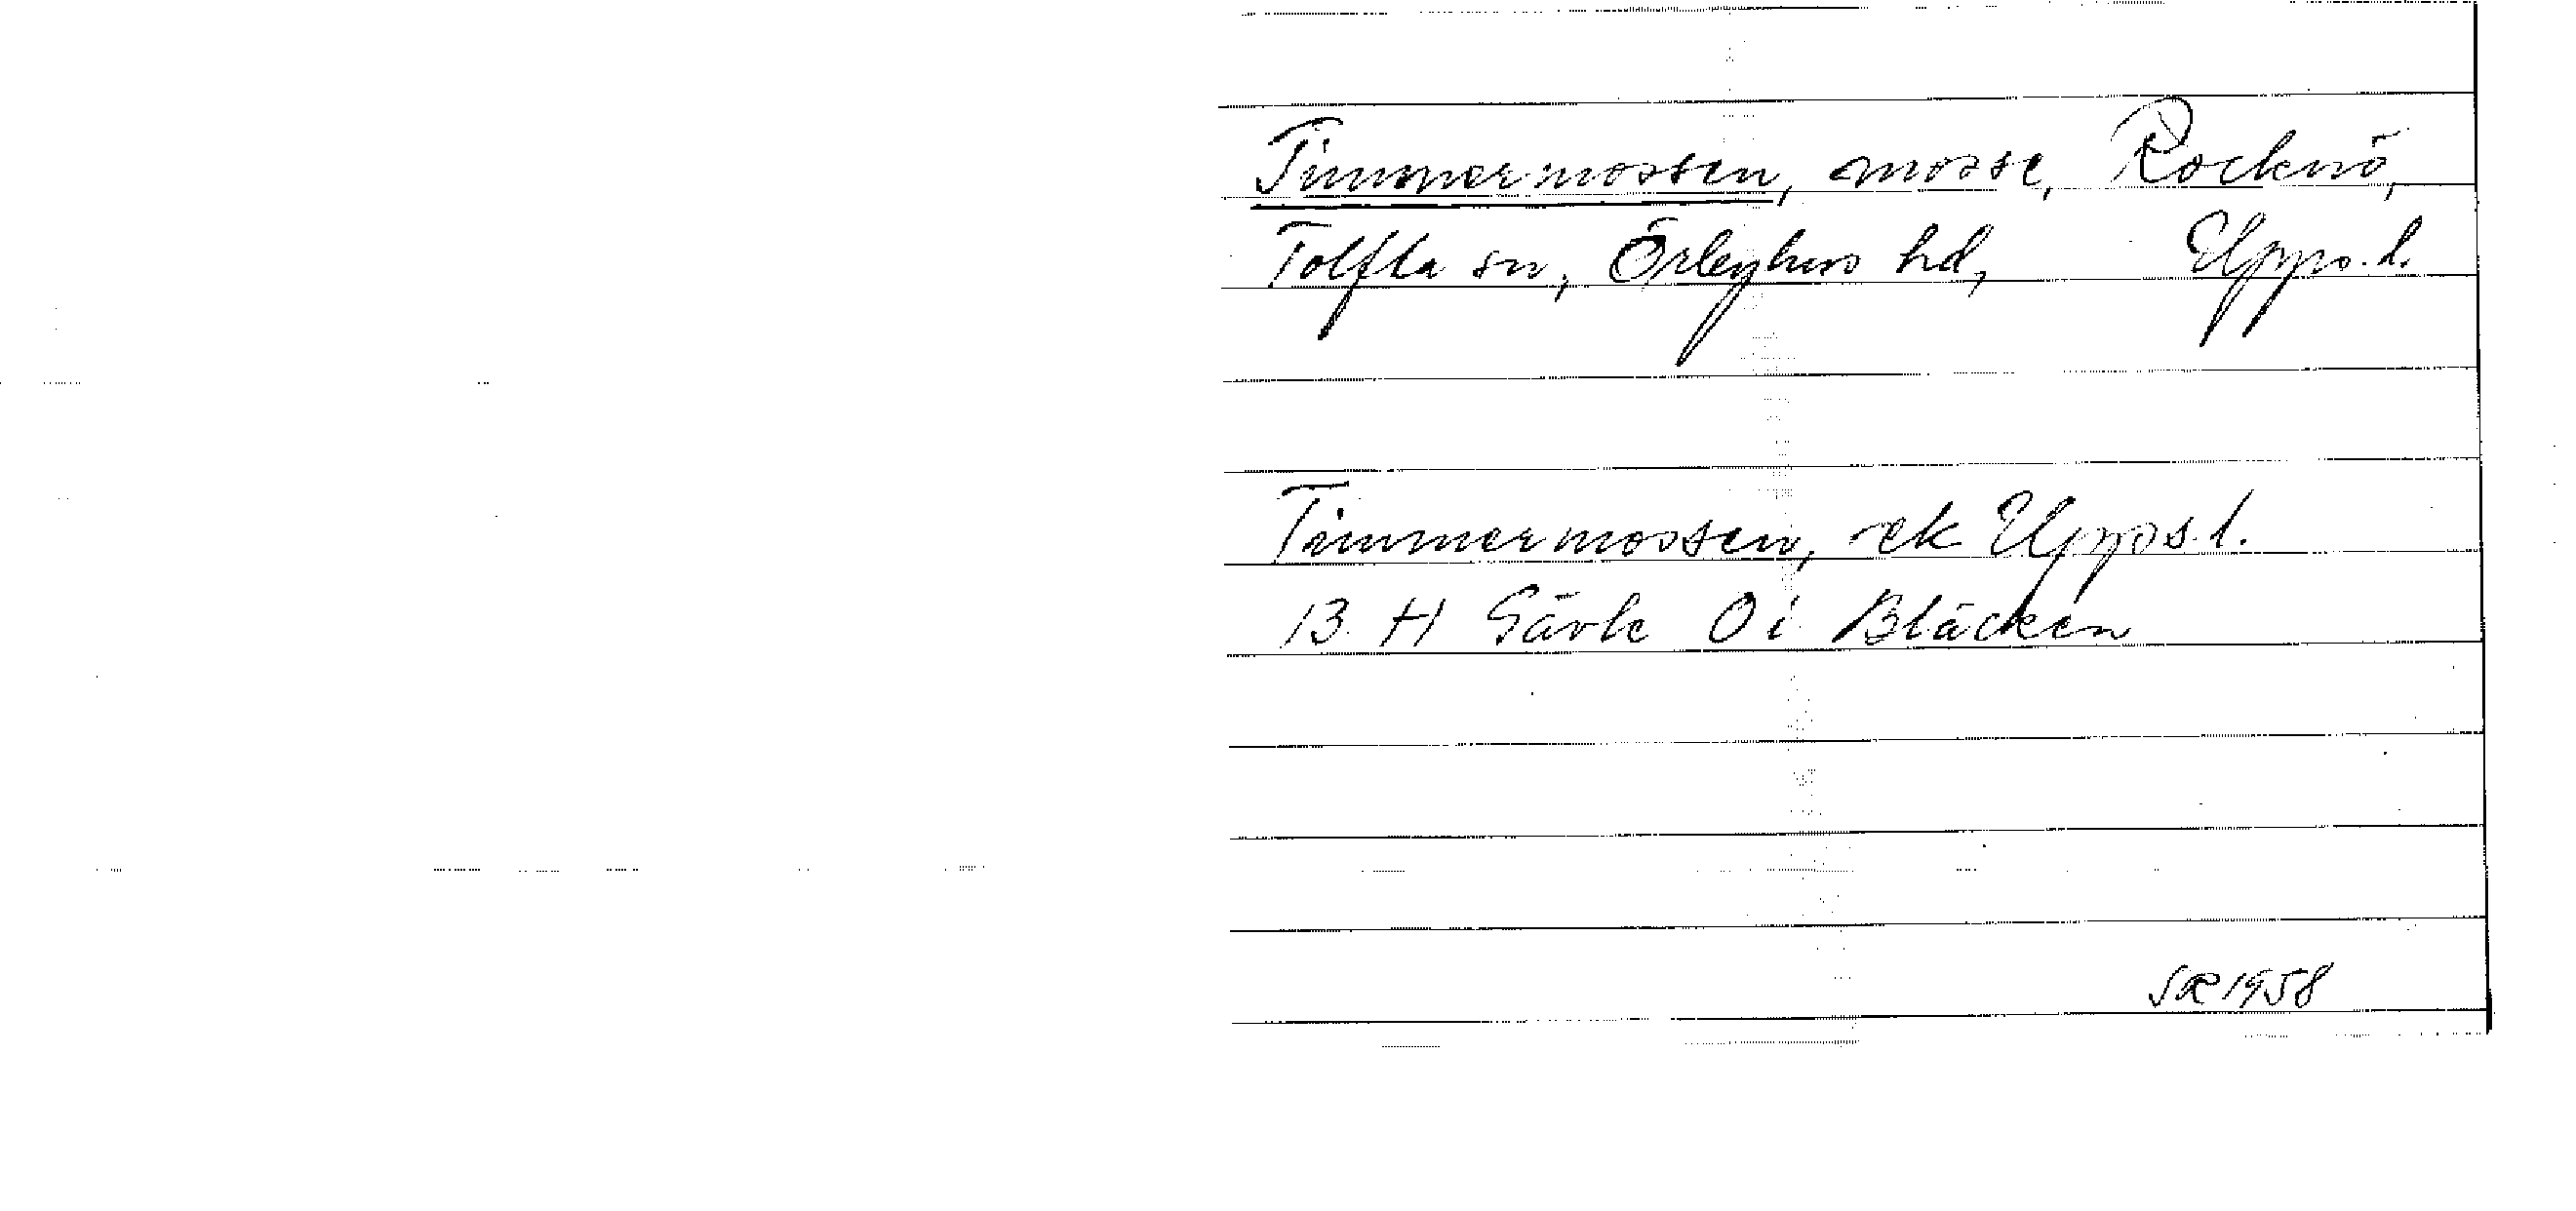 Timmermossen, mosse, Rocknö,
Tolfta sn, Örbyhus hd, Upps. l.
Timmermossen, ek Upps. l.
13 H Gävle 0 i Bläcken
SR 1958